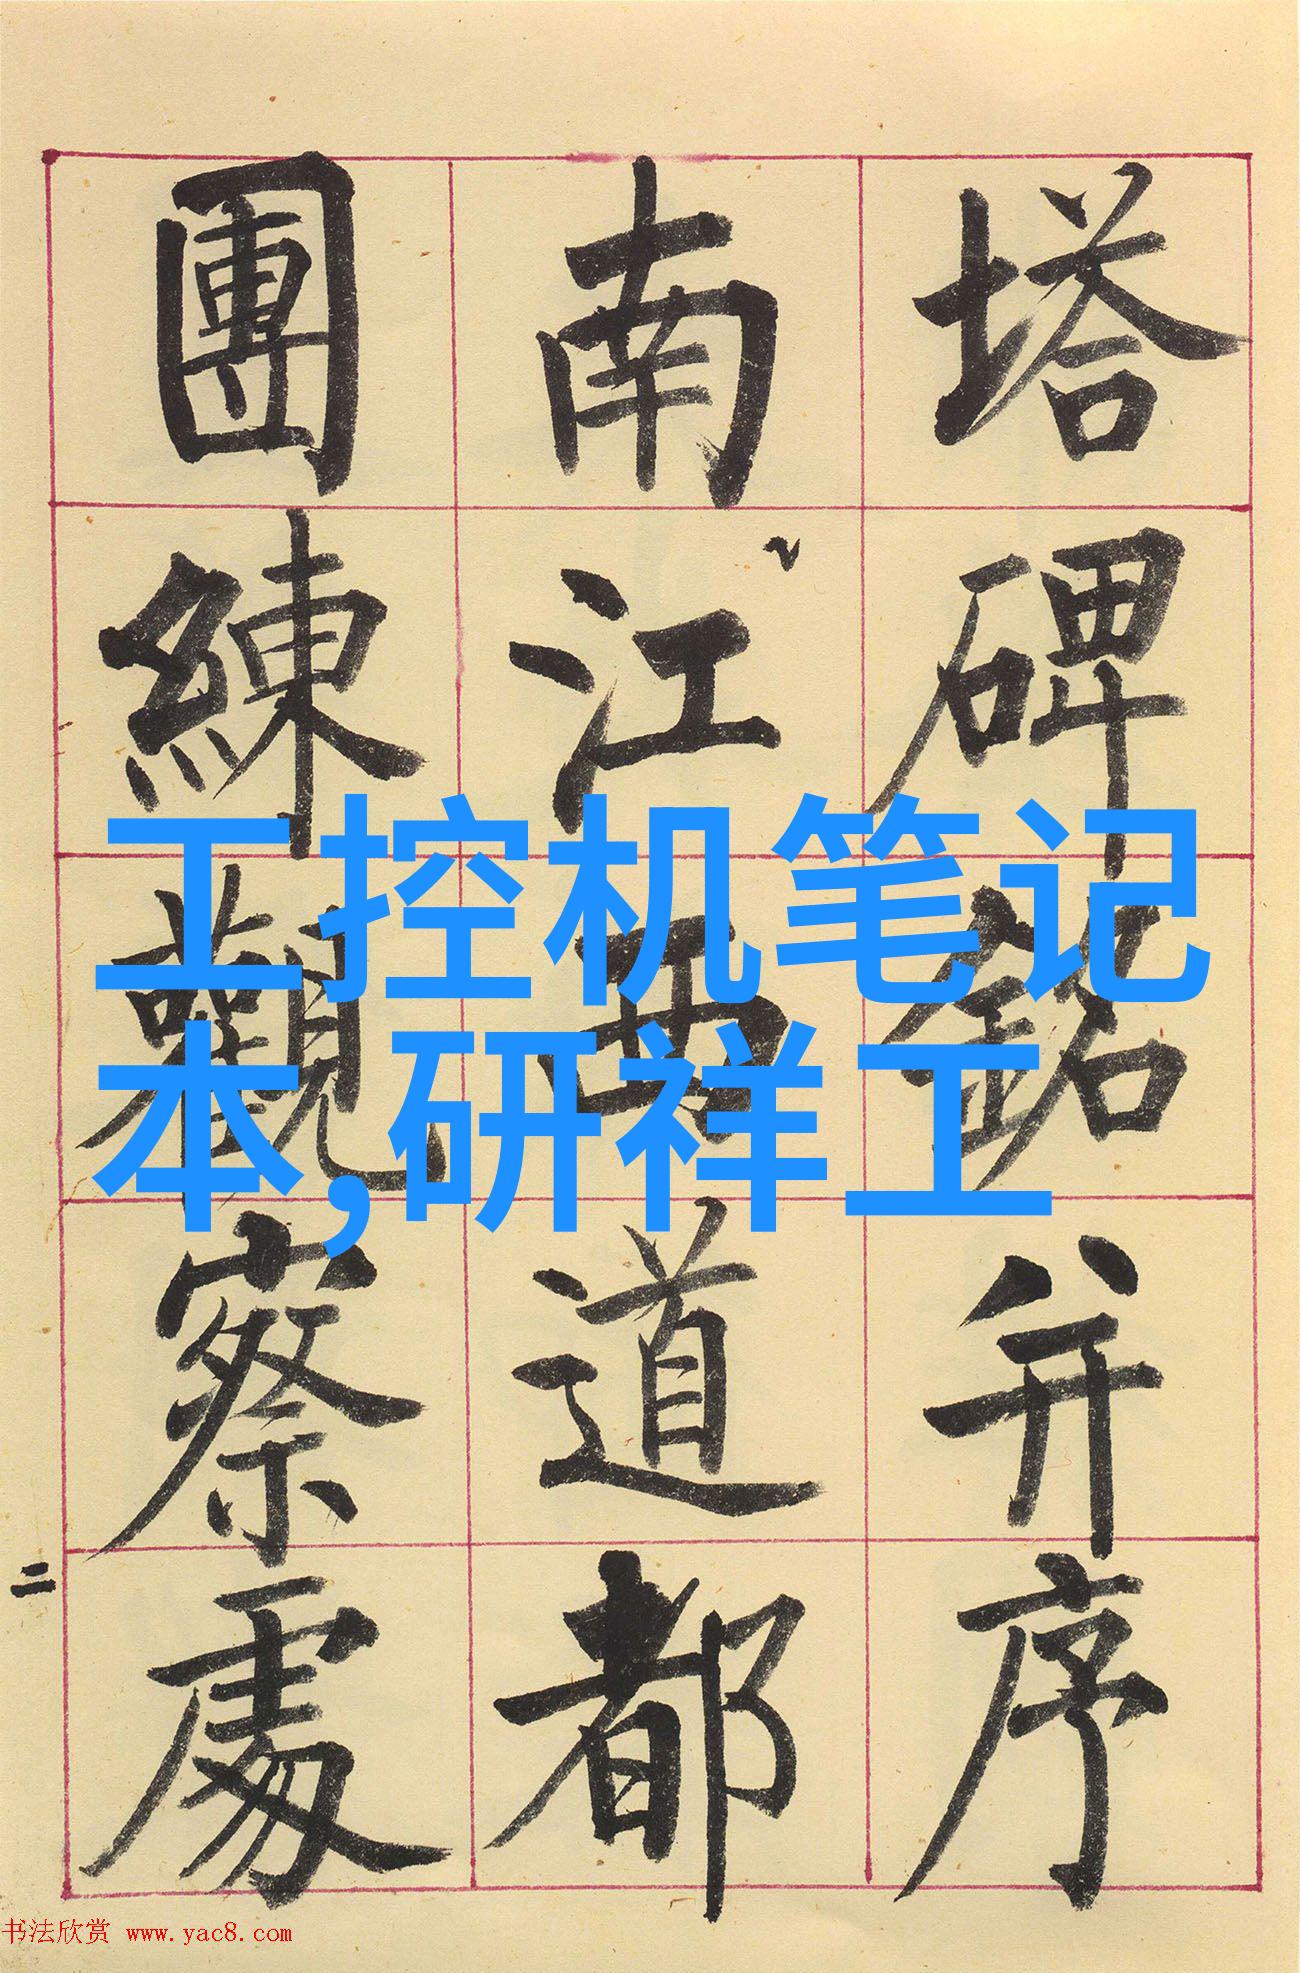 塔碑銘并序
南江西道都
團練觀察處
工控机笔记
本,研祥工
二
书法欣赏 www.yac8.com